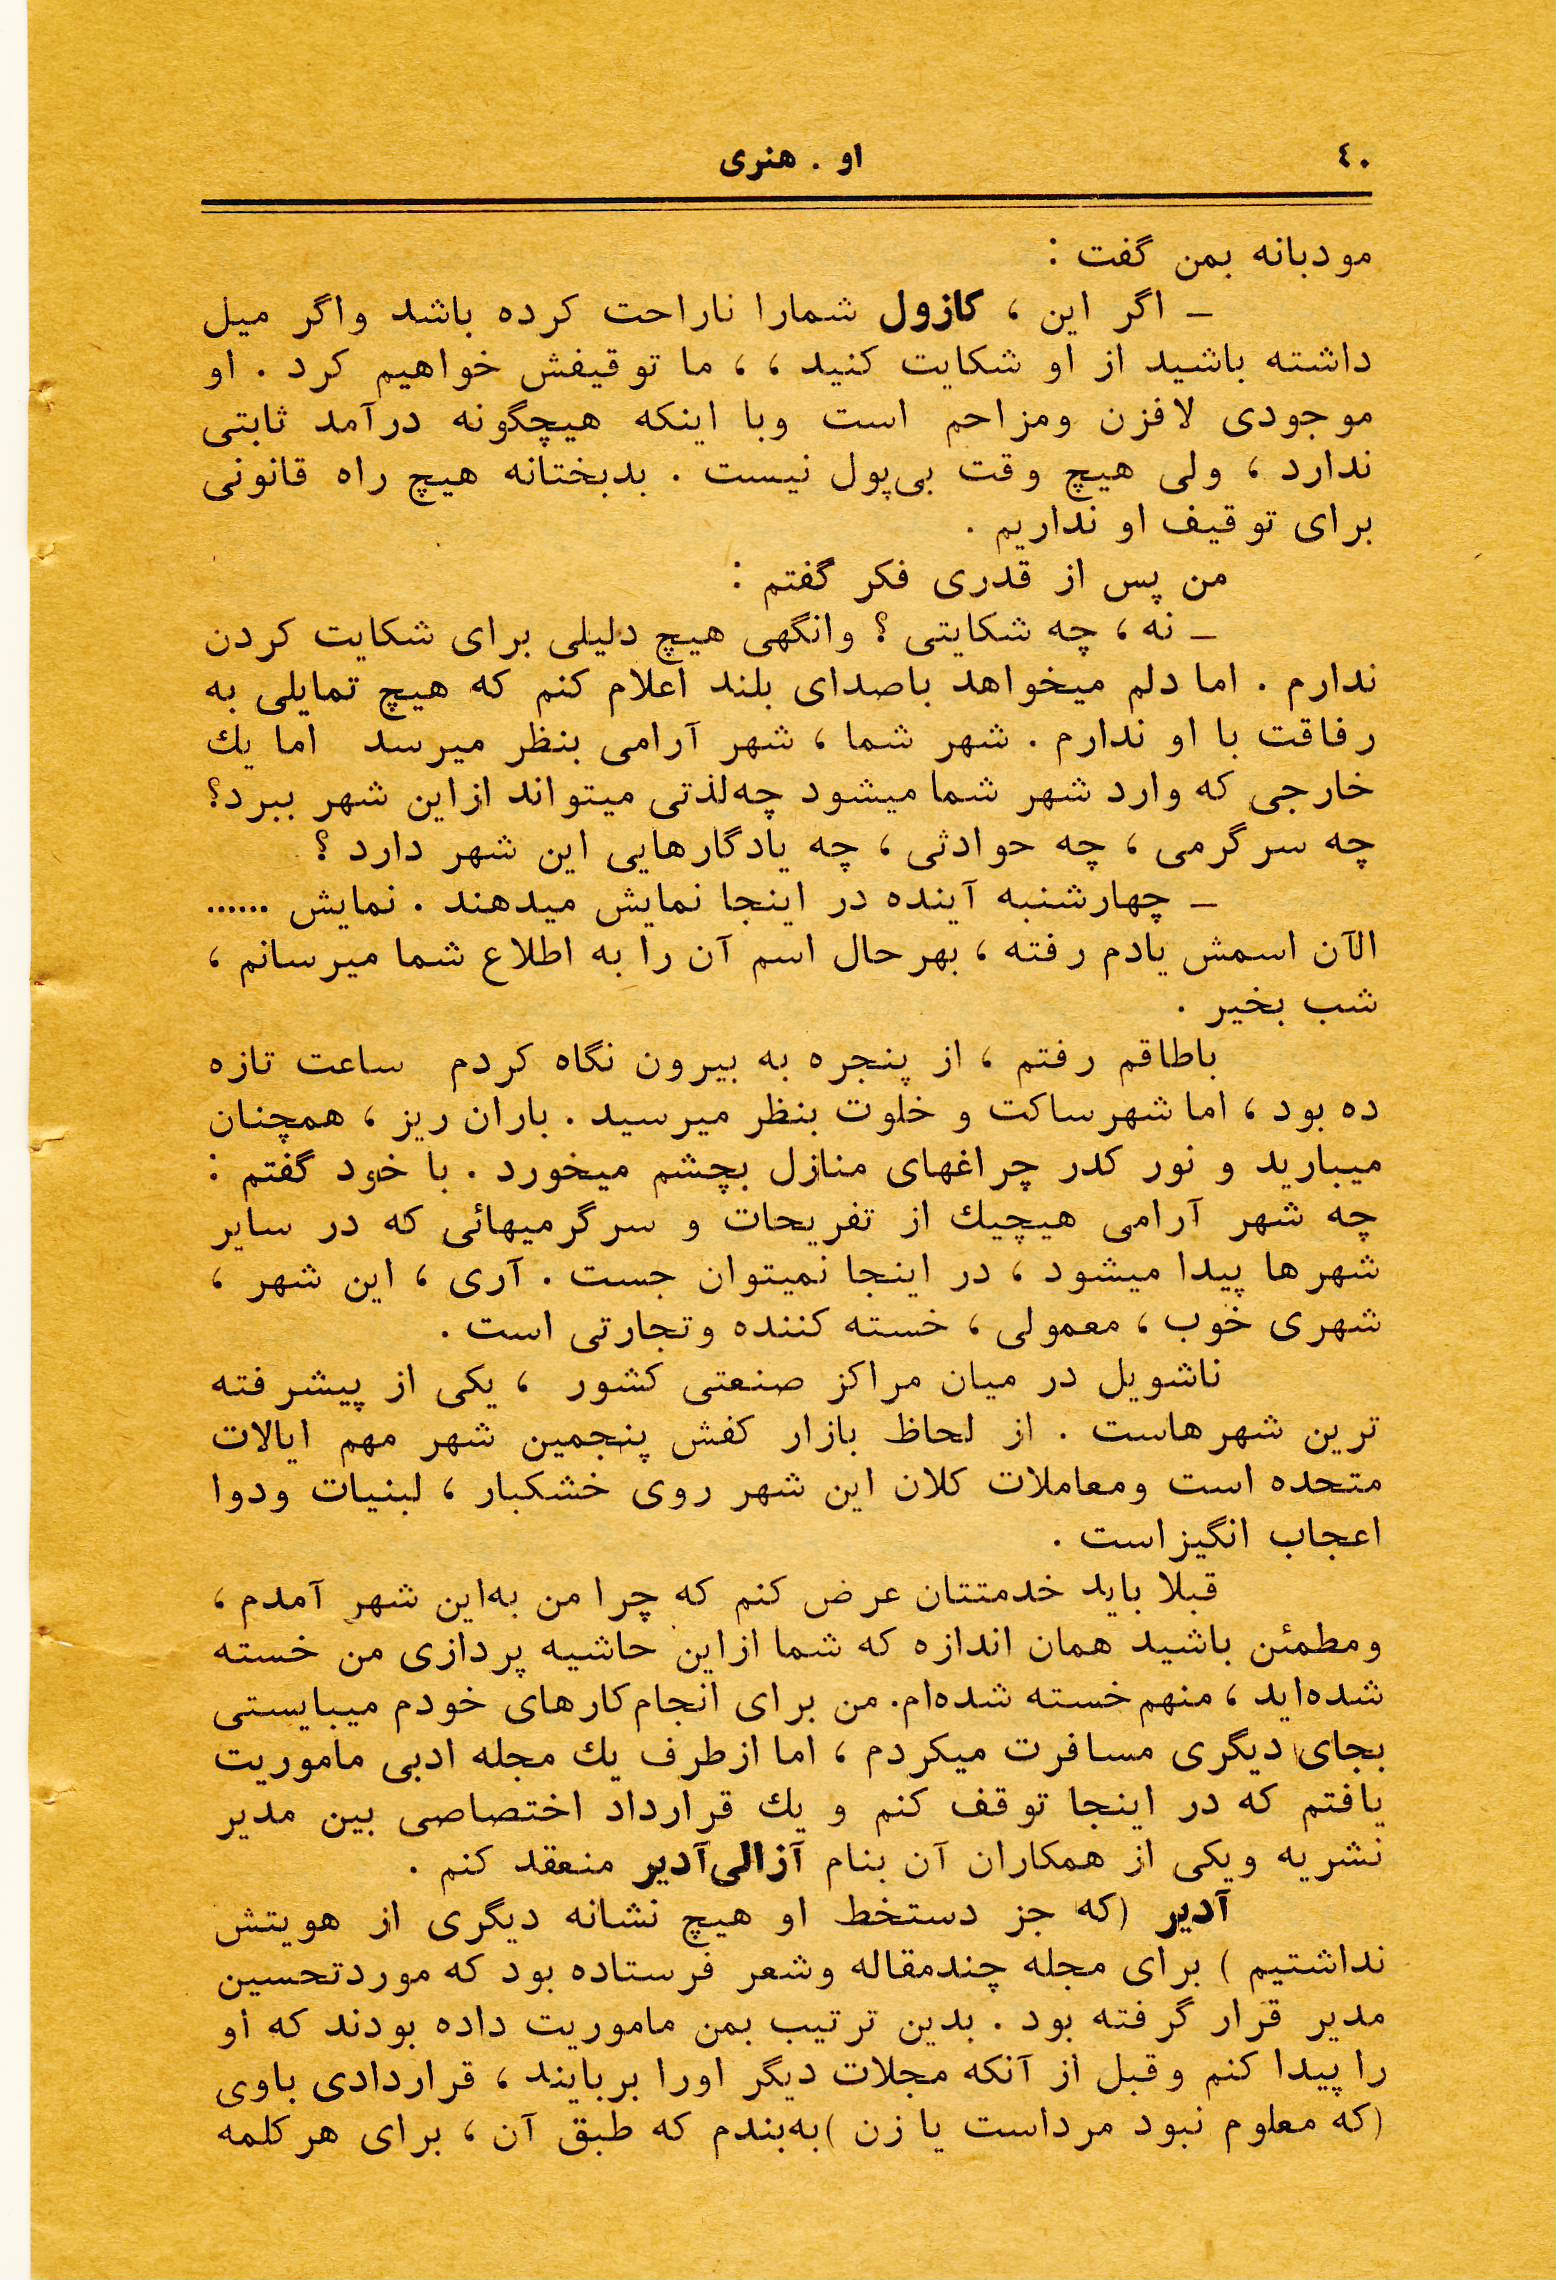 ٤٠
او . هنری
مودبانه بمن گفت :
ـ اگر این ، کازول شمارا ناراحت کرده باشد واگر میل
داشته باشید از او شکایت کنید ، ، ما توقیفش خواهیم کرد . او
موجودی لافزن ومزاحم است وبا اینکه هیچگونه درآمد ثابتی
ندارد ، ولی هیچ وقت بی‌پول نیست . بدبختانه هیچ راه قانونی
برای توقیف او نداریم .
من پس از قدری فکر گفتم :
ـ نه ، چه شکایتی ؟ وانگهی هیچ دلیلی برای شکایت کردن
ندارم . اما دلم میخواهد باصدای بلند اعلام کنم که هیچ تمایلی به
رفاقت با او ندارم . شهر شما ، شهر آرامی بنظر میرسد اما یك
خارجی که وارد شهر شما میشود چه‌لذتی میتواند ازاین شهر ببرد؟
چه سرگرمی ، چه حوادثی ، چه یادگارهایی این شهر دارد ؟
ـ چهارشنبه آینده در اینجا نمایش میدهند . نمایش ......
الآن اسمش یادم رفته ، بهرحال اسم آن را به اطلاع شما میرسانم ،
شب بخیر .
باطاقم رفتم ، از پنجره به بیرون نگاه کردم ساعت تازه
ده بود ، اما شهرساکت و خلوت بنظر میرسید . باران ریز ، همچنان
میبارید و نور کدر چراغهای منازل بچشم میخورد . با خود گفتم :
چه شهر آرامی هیچیك از تفریحات و سرگرمیهائی که در سایر
شهرها پیدا میشود ، در اینجا نمیتوان جست . آری ، این شهر ،
شهری خوب ، معمولی ، خسته کننده وتجارتی است .
ناشویل در میان مراکز صنعتی کشور ، یکی از پیشرفته
ترین شهرهاست . از لحاظ بازار کفش پنجمین شهر مهم ایالات
متحده است ومعاملات کلان این شهر روی خشکبار ، لبنیات ودوا
اعجاب انگیزاست .
قبلا باید خدمتتان عرض کنم که چرا من به‌این شهر آمدم ،
ومطمئن باشید همان اندازه که شما ازاین حاشیه پردازی من خسته
شده‌اید ، منهم خسته شده‌ام. من برای انجام کارهای خودم میبایستی
بجای دیگری مسافرت میکردم ، اما ازطرف یك مجله ادبی ماموریت
یافتم که در اینجا توقف کنم و یك قرارداد اختصاصی بین مدیر
نشریه ویکی از همکاران آن بنام آزالی‌آدیر منعقد کنم .
آدیر (که جز دستخط او هیچ نشانه دیگری از هویتش
نداشتیم ) برای مجله چندمقاله وشعر فرستاده بود که موردتحسین
مدیر قرار گرفته بود . بدین ترتیب بمن ماموریت داده بودند که او
را پیدا کنم وقبل از آنکه مجلات دیگر اورا بربایند ، قراردادی باوی
(که معلوم نبود مرداست یا زن )به‌بندم که طبق آن ، برای هرکلمه